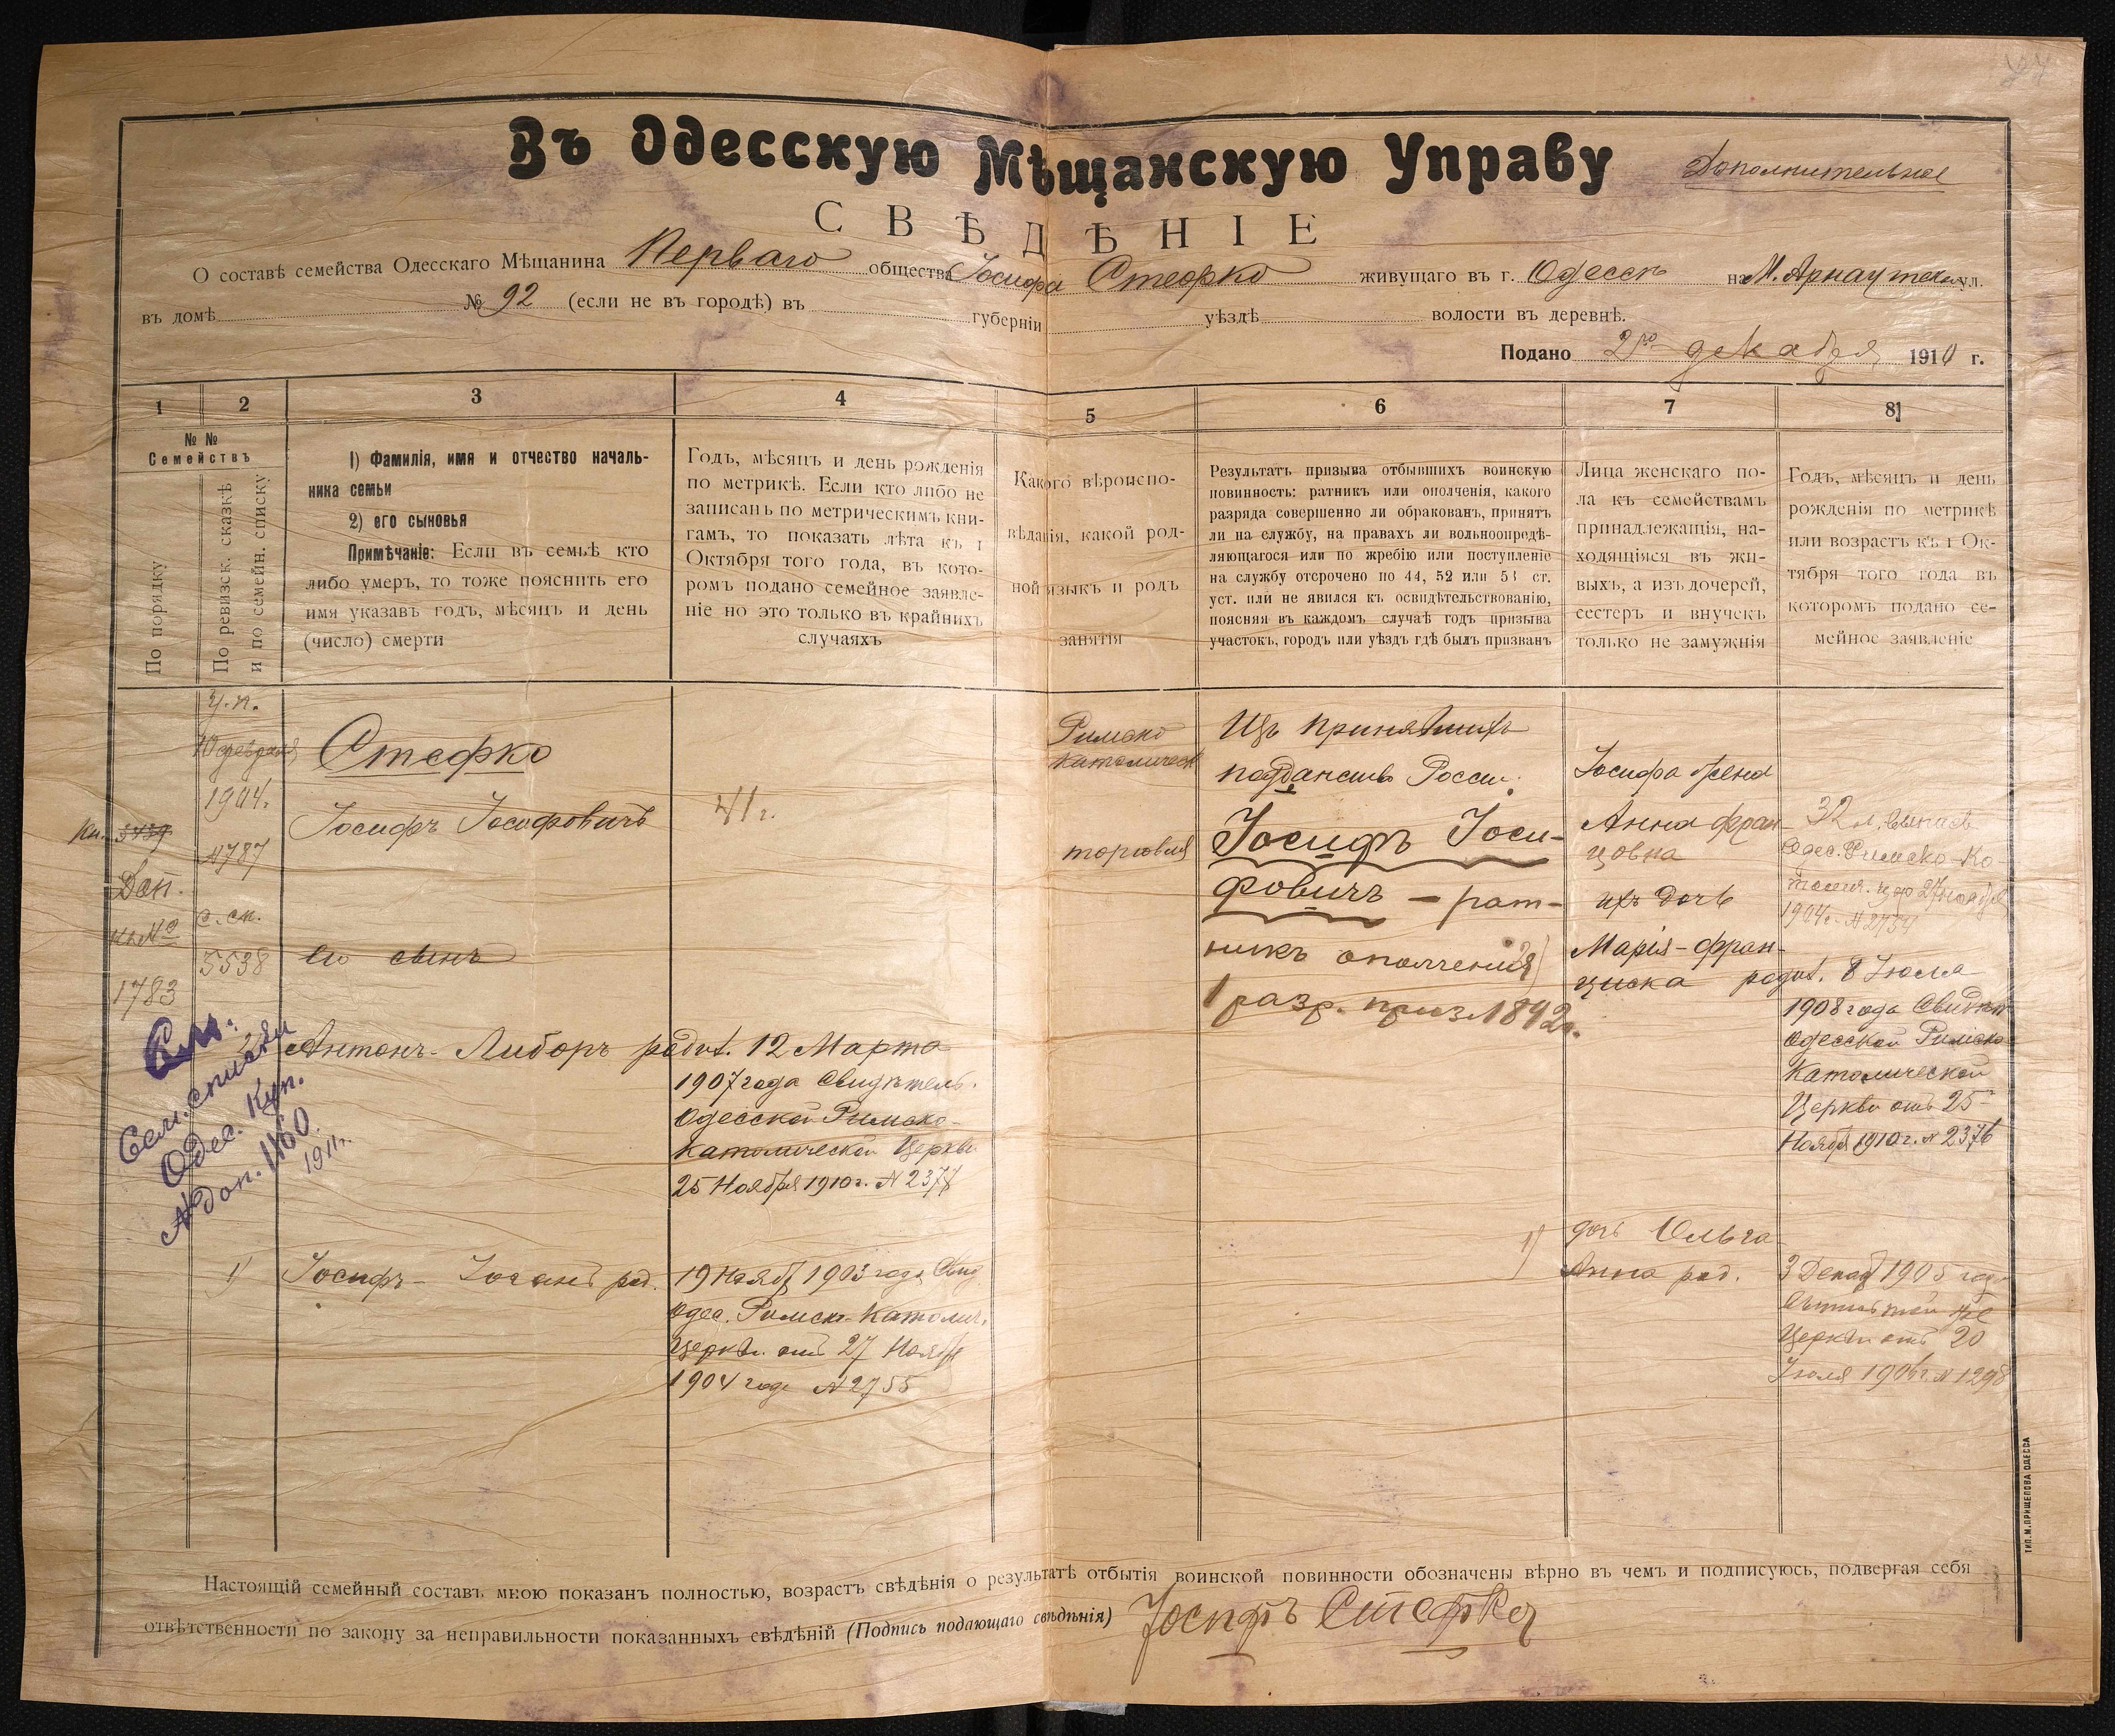 Въ Одесскую Мѣщанскую Управу
Дополнительное
СВѢДѢНІЕ
О составѣ семейства Одесскаго Мѣщанина Перваго общества Іосифа Стефко живущаго въ г. Одессѣ на М. Арнаутской ул.
въ домѣ № 92 (если не въ городѣ) въ губерніи уѣздѣ волости въ деревнѣ.
Подано 2го декабря 1910 г.
1
2
3
4
5
6
7
8
№ №
Семействъ
По порядку
По ревизск. сказкѣ
и по семейн. списку
1) Фамилія, имя и отчество началь-
ника семьи
2) его сыновья
Примѣчаніе: Если въ семьѣ кто
либо умеръ, то тоже пояснить его
имя указавъ годъ, мѣсяцъ и день
(число) смерти
Годъ, мѣсяцъ и день рожденія
по метрикѣ. Если кто либо не
записанъ по метрическимъ кни-
гамъ, то показать лѣта къ 1
Октября того года, въ кото-
ромъ подано семейное заявле-
ніе но это только въ крайнихъ
случаяхъ
Какого вѣроиспо-
вѣданія, какой род-
ной языкъ и родъ
занятія
Результатъ призыва отбывшихъ воинскую
повинность: ратникъ или ополченія, какого
разряда совершенно ли обракованъ, принятъ
ли на службу, на правахъ ли вольноопредѣ-
ляющагося или по жребію или поступленіе
на службу отсрочено по 44, 52 или 53 ст.
уст. или не явился къ освидѣтельствованію,
поясняя въ каждомъ случаѣ годъ призыва
участокъ, городъ или уѣздъ гдѣ былъ призванъ
Лица женскаго по-
ла къ семействамъ
принадлежащія, на-
ходящіяся въ жи-
выхъ, а изъ дочерей,
сестеръ и внучекъ
только не замужнія
Годъ, мѣсяцъ и день
рожденія по метрикѣ
или возрастъ къ 1 Ок-
тября того года въ
которомъ подано се-
мейное заявленіе
Кн. 3439
Доп.
кн №
1783
у.п.
10 февраля
1904.
№787
с. сп.
5538
Сем. списки
Одес. Куп.
№ доп. 1160
1911г.
Стефко
Іосифъ Іосифовичъ
41 г.
его сынъ
Антонъ-Либоръ родил. 12 Марта
1907 года Свидѣтель.
Одесской Римско-
Католической Церкви
25 Ноября 1910 г. № 2377
1) Іосифъ- Іоганъ род. 19 Нояб 1903 года Свид
Одес. Римск-Католич.
Церкви отъ 27 Нояб
1904 года №2755
Римско
Католическ
торговля
Изъ принявшихъ
подданство Россіи.
Іосифъ Іоси-
фовичъ - рат-
никъ ополченія
1 разр. приз. 1892 г.
Іосифа жена
Анна Фран-
цовна
ихъ дочь
Марія-Фран-
циска родил. 8 Іюля
1) дочь Ольга
Анна род.
32 л.
Одес. Римско-Ка-
толич. 27 ноября
1904 г. № 2754
1908 года Свидѣт
Одесской Римско
Католической
Церкви отъ 25
Ноября 1910 г. № 2376
3 Декаб 1905 года
той же
Церкви отъ 20
Іюля 1906 г. № 1298
Настоящій семейный составъ мною показанъ полностью, возрастъ свѣдѣнія о результатѣ отбытія воинской повинности обозначены вѣрно въ чемъ и подписуюсь, подвергая себя
отвѣтственности по закону за неправильности показанныхъ свѣдѣній (Подпись подающаго свѣдѣнія) Іосифъ Стефко
ТИП. М. ПРИЩЕПОВА ОДЕССА